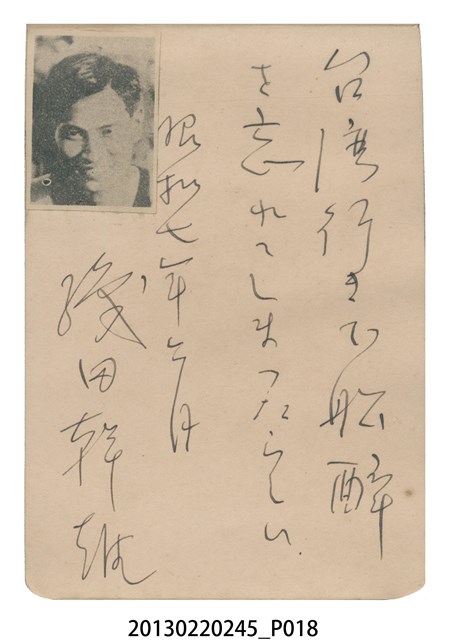 台湾行きで船酔
を忘れてしまったらしい
昭和七年六月
織田幹雄
20130220245_P018